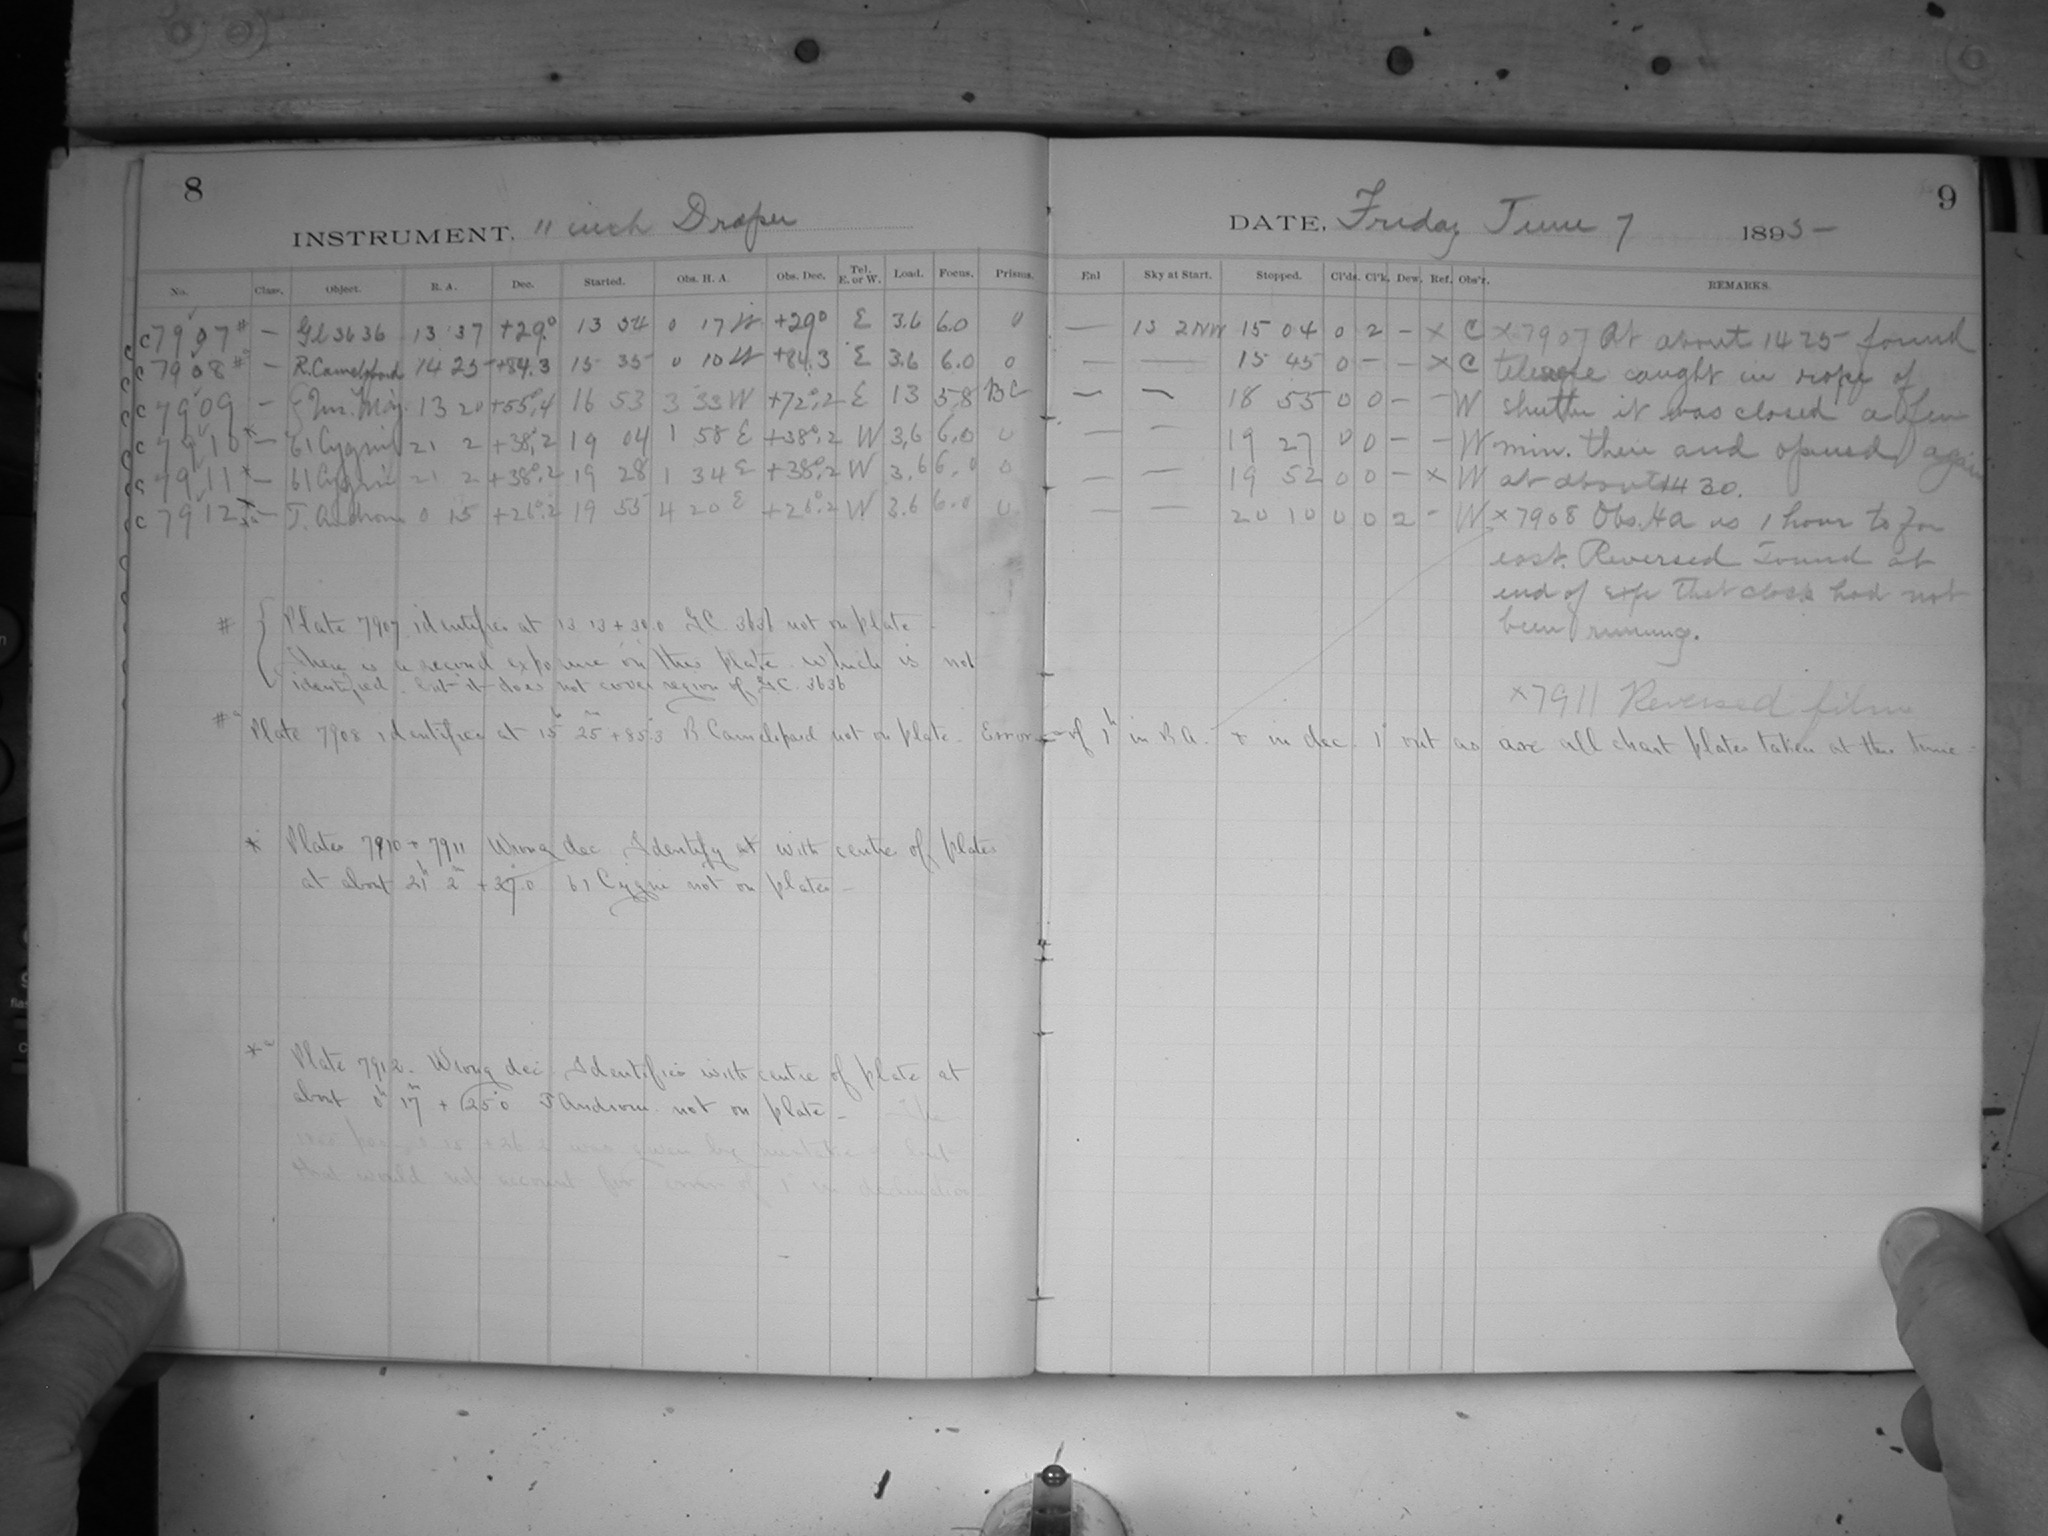 8
INSTRUMENT, 11 inch Draper
No. Class. Object. R. A. Dec. Started. Obs. H. A. Obs. Dec. Tel. E. or W. Load. Focus. Prisms.
C 7907 # — 3636 13 37 +29.° 13 54 0 17 W +29° E 3.6 6.0 0
C 7908 # — R. 14 25 +84.3 15 35 0 10 W +84.3 E 3.6 6.0 0
C 7909 — 13 20 +55°.4 16 53 3 33 W +72°.2 E 13 5.8
C 7910 * — 61 Cygni 21 2 +38°.2 19 04 1 58 E +38°.2 W 3.6 6.0 0
C 7911 * — 61 Cygni 21 2 +38°.2 19 28 1 34 E +38°.2 W 3.6 6.0 0
C 7912 — T. Androm 0 15 +26°.2 19 55 4 20 E +26°.2 W 3.6 6.0 0
# { Plate 7907 identifies at 13 13 + 30.0 G.C. 3636 not on plate –
There is a second exposure on this plate which is not
identified. but it does not cover region of G.C. 3636
# Plate 7908 identifies at 15h 25m +85°.3 R Camelopard not on plate – Error of 1h in R A. + in dec. 1° out as are all chart plates taken at this time –
* Plates 7910 + 7911 Wrong dec. Identify at with centre of plates
at about 21h 2m +37°.0 61 Cygni not on plates –
* Plate 7912. Wrong dec. Identifies with centre of plate at
about 0h 17m + 25°.0 T Androm. not on plate –
was given by mistake but
that would not account for error of 1° in declination
9
DATE, Friday June 7 1895
Enl Sky at Start. Stopped. Cl'ds. Cl'k. Dew. Ref. Obs'r. REMARKS.
— 13 2 NW 15 04 0 2 – x C x 7907 At about 14 25 found
— — 15 45 0 – – x C telescope caught in rope of
— — 18 55 0 0 – – W shutter it was closed a few
— — 19 27 0 0 – – W min. there and opened again
— — 19 52 0 0 – x W at about 14 30.
— — 20 10 0 0 2 – W x 7908 Obs. Ha is 1 hour to far
east. Reversed Found at
end of exp that clock had not
been running.
x 7911 Reversed film